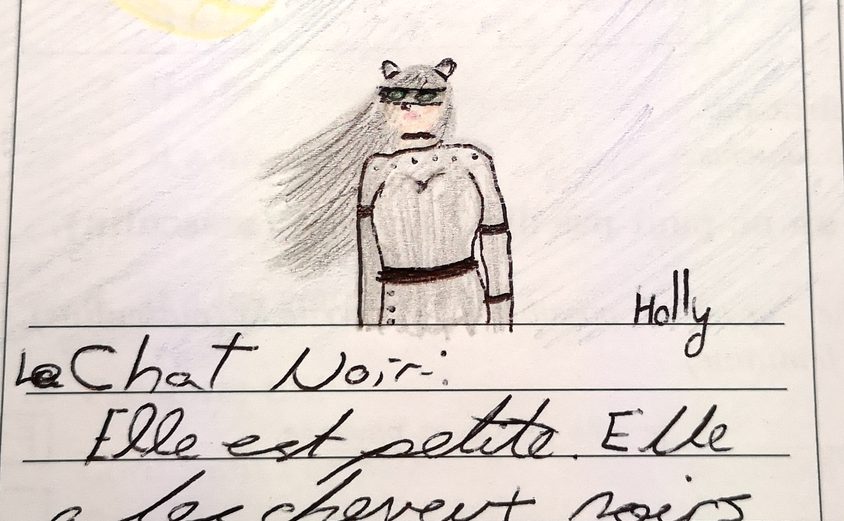 Holly
Le Chat Noir:
Elle est petite. Elle
a les cheveux noirs